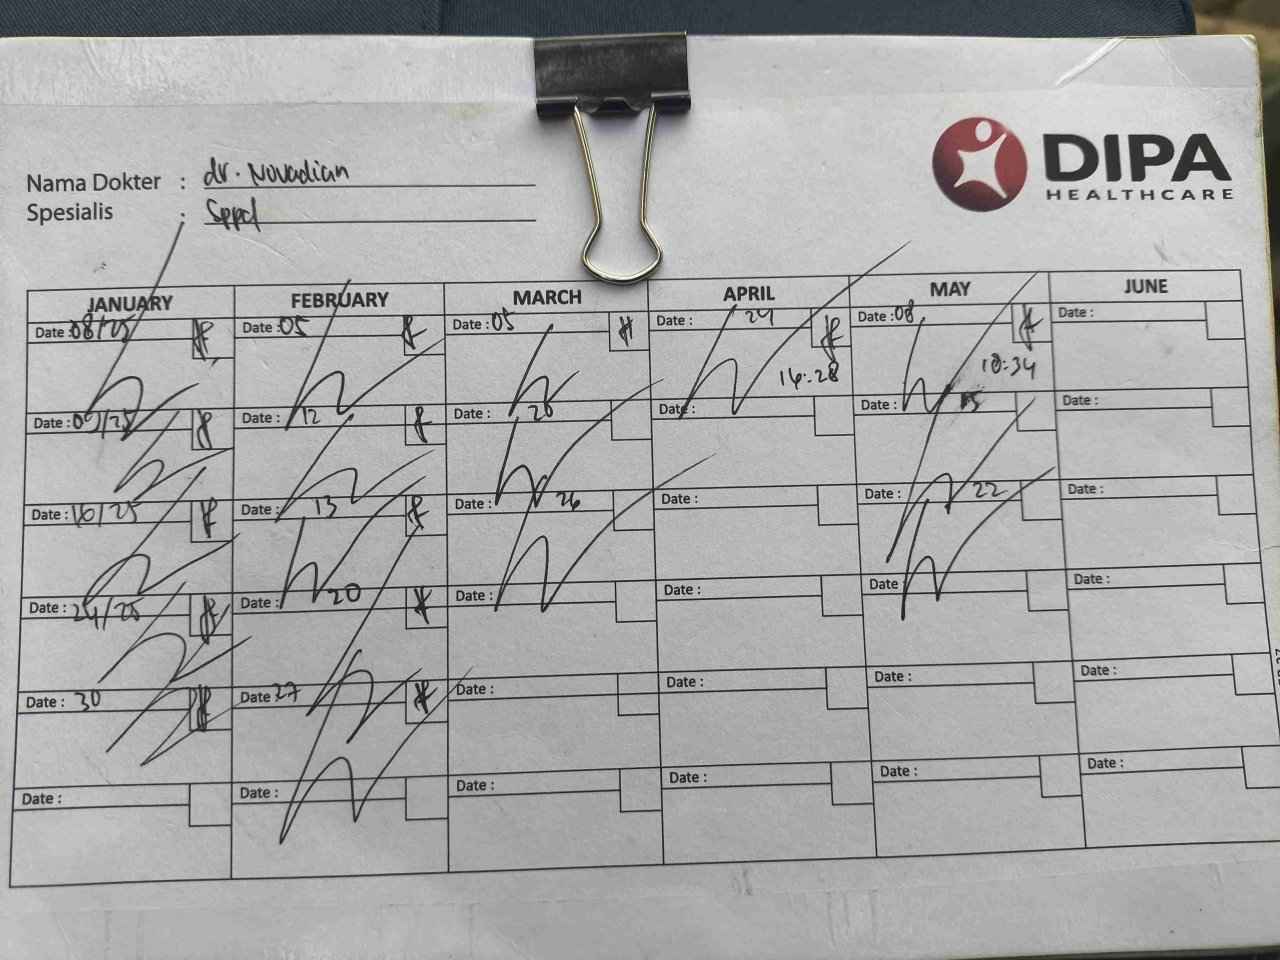 DIPA
HEALTHCARE
Nama Dokter : dr. Novadian
Spesialis : Sppd
JANUARY FEBRUARY MARCH APRIL MAY JUNE
Date : 08/25 Date : 05 Date : 05 Date : 24 Date : 08 Date :
14:28 10:34
Date : 09/25 Date : 12 Date : 20 Date : Date : 15 Date :
Date : 16/25 Date : 13 Date : 26 Date : Date : 22 Date :
Date : 24/25 Date : 20 Date : Date : Date Date :
Date : 30 Date : 27 Date : Date : Date : Date :
Date : Date : Date : Date : Date : Date :